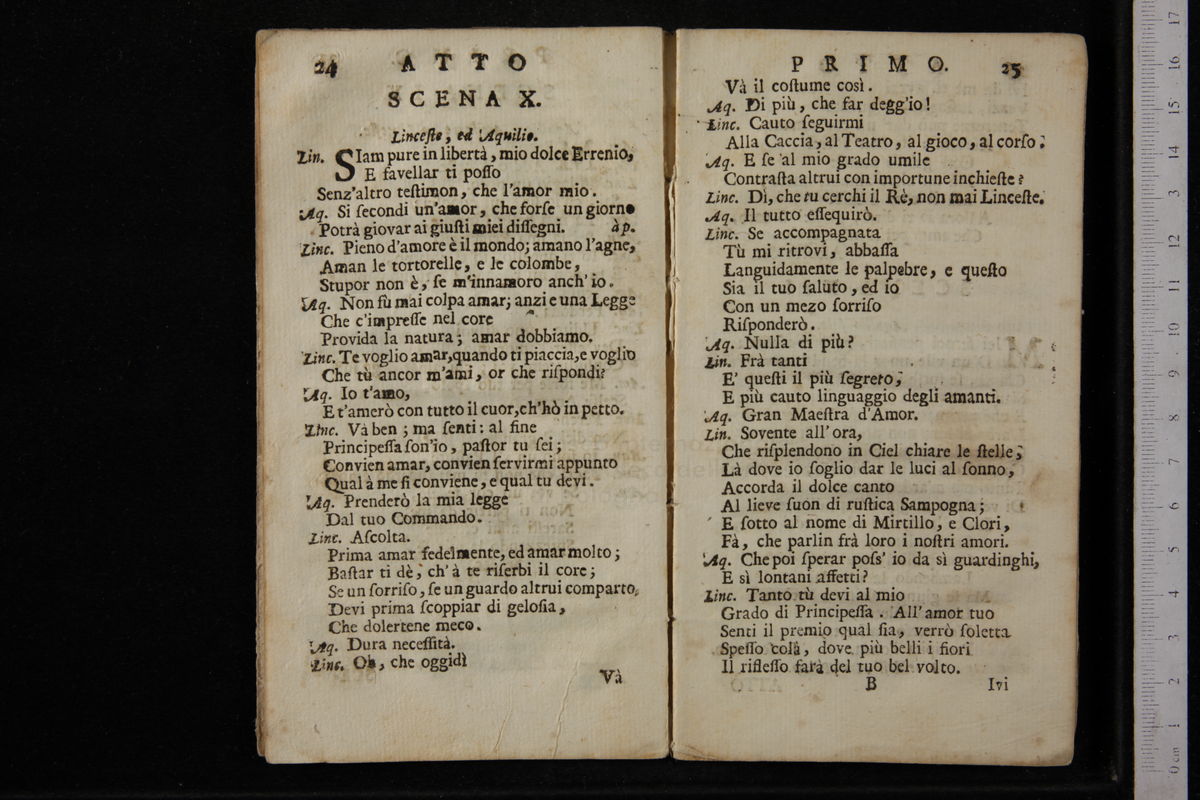 24 ATTO
SCENA X.
Linceste, ed Aquilio.
Lin. SIam pure in libertà, mio dolce Errenio,
E favellar ti posso
Senz'altro testimon, che l'amor mio.
Aq. Si secondi un'amor, che forse un giorno
Potrà giovar ai giusti miei dissegni. àp.
Linc. Pieno d'amore è il mondo; amano l'agne,
Aman le tortorelle, e le colombe,
Stupor non è, se m'innamoro anch'io.
Aq. Non fù mai colpa amar; anzi e una Legge
Che c'impresse nel core
Provida la natura; amar dobbiamo.
Linc. Te voglio amar, quando ti piaccia, e voglio
Che tù ancor m'ami, or che rispondi?
Aq. Io t'amo,
E t'amerò con tutto il cuor, ch'hò in petto.
Linc. Và ben; ma senti: al fine
Principessa son'io, pastor tu sei;
Convien amar, convien servirmi appunto
Qual à me si conviene, e qual tu devi.
Aq. Prenderò la mia legge
Dal tuo Commando.
Linc. Ascolta.
Prima amar fedelmente, ed amar molto;
Bastar ti dè, ch'à te riserbi il core;
Se un sorriso, se un guardo altrui comparto,
Devi prima scoppiar di gelosia,
Che dolertene meco.
Aq. Dura necessità.
Linc. Oh, che oggidì
Và
PRIMO. 25
Và il costume così.
Aq. Di più, che far degg'io!
Linc. Cauto seguirmi
Alla Caccia, al Teatro, al gioco, al corso;
Aq. E se al mio grado umile
Contrasta altrui con importune inchieste?
Linc. Dì, che tu cerchi il Rè, non mai Linceste.
Aq. Il tutto essequirò.
Linc. Se accompagnata
Tù mi ritrovi, abbassa
Languidamente le palpebre, e questo
Sia il tuo saluto, ed io
Con un mezo sorriso
Risponderò.
Aq. Nulla di più?
Lin. Frà tanti
E' questi il più segreto,
E più cauto linguaggio degli amanti.
Aq. Gran Maestra d'Amor.
Lin. Sovente all'ora,
Che risplendono in Ciel chiare le stelle,
Là dove io soglio dar le luci al sonno,
Accorda il dolce canto
Al lieve suon di rustica Sampogna;
E sotto al nome di Mirtillo, e Clori,
Fà, che parlin frà loro i nostri amori.
Aq. Che poi sperar poss' io da sì guardinghi,
E sì lontani affetti?
Linc. Tanto tù devi al mio
Grado di Principessa. All'amor tuo
Senti il premio qual sia, verrò soletta
Spesso colà, dove più belli i fiori
Il riflesso farà del tuo bel volto.
B Ivi